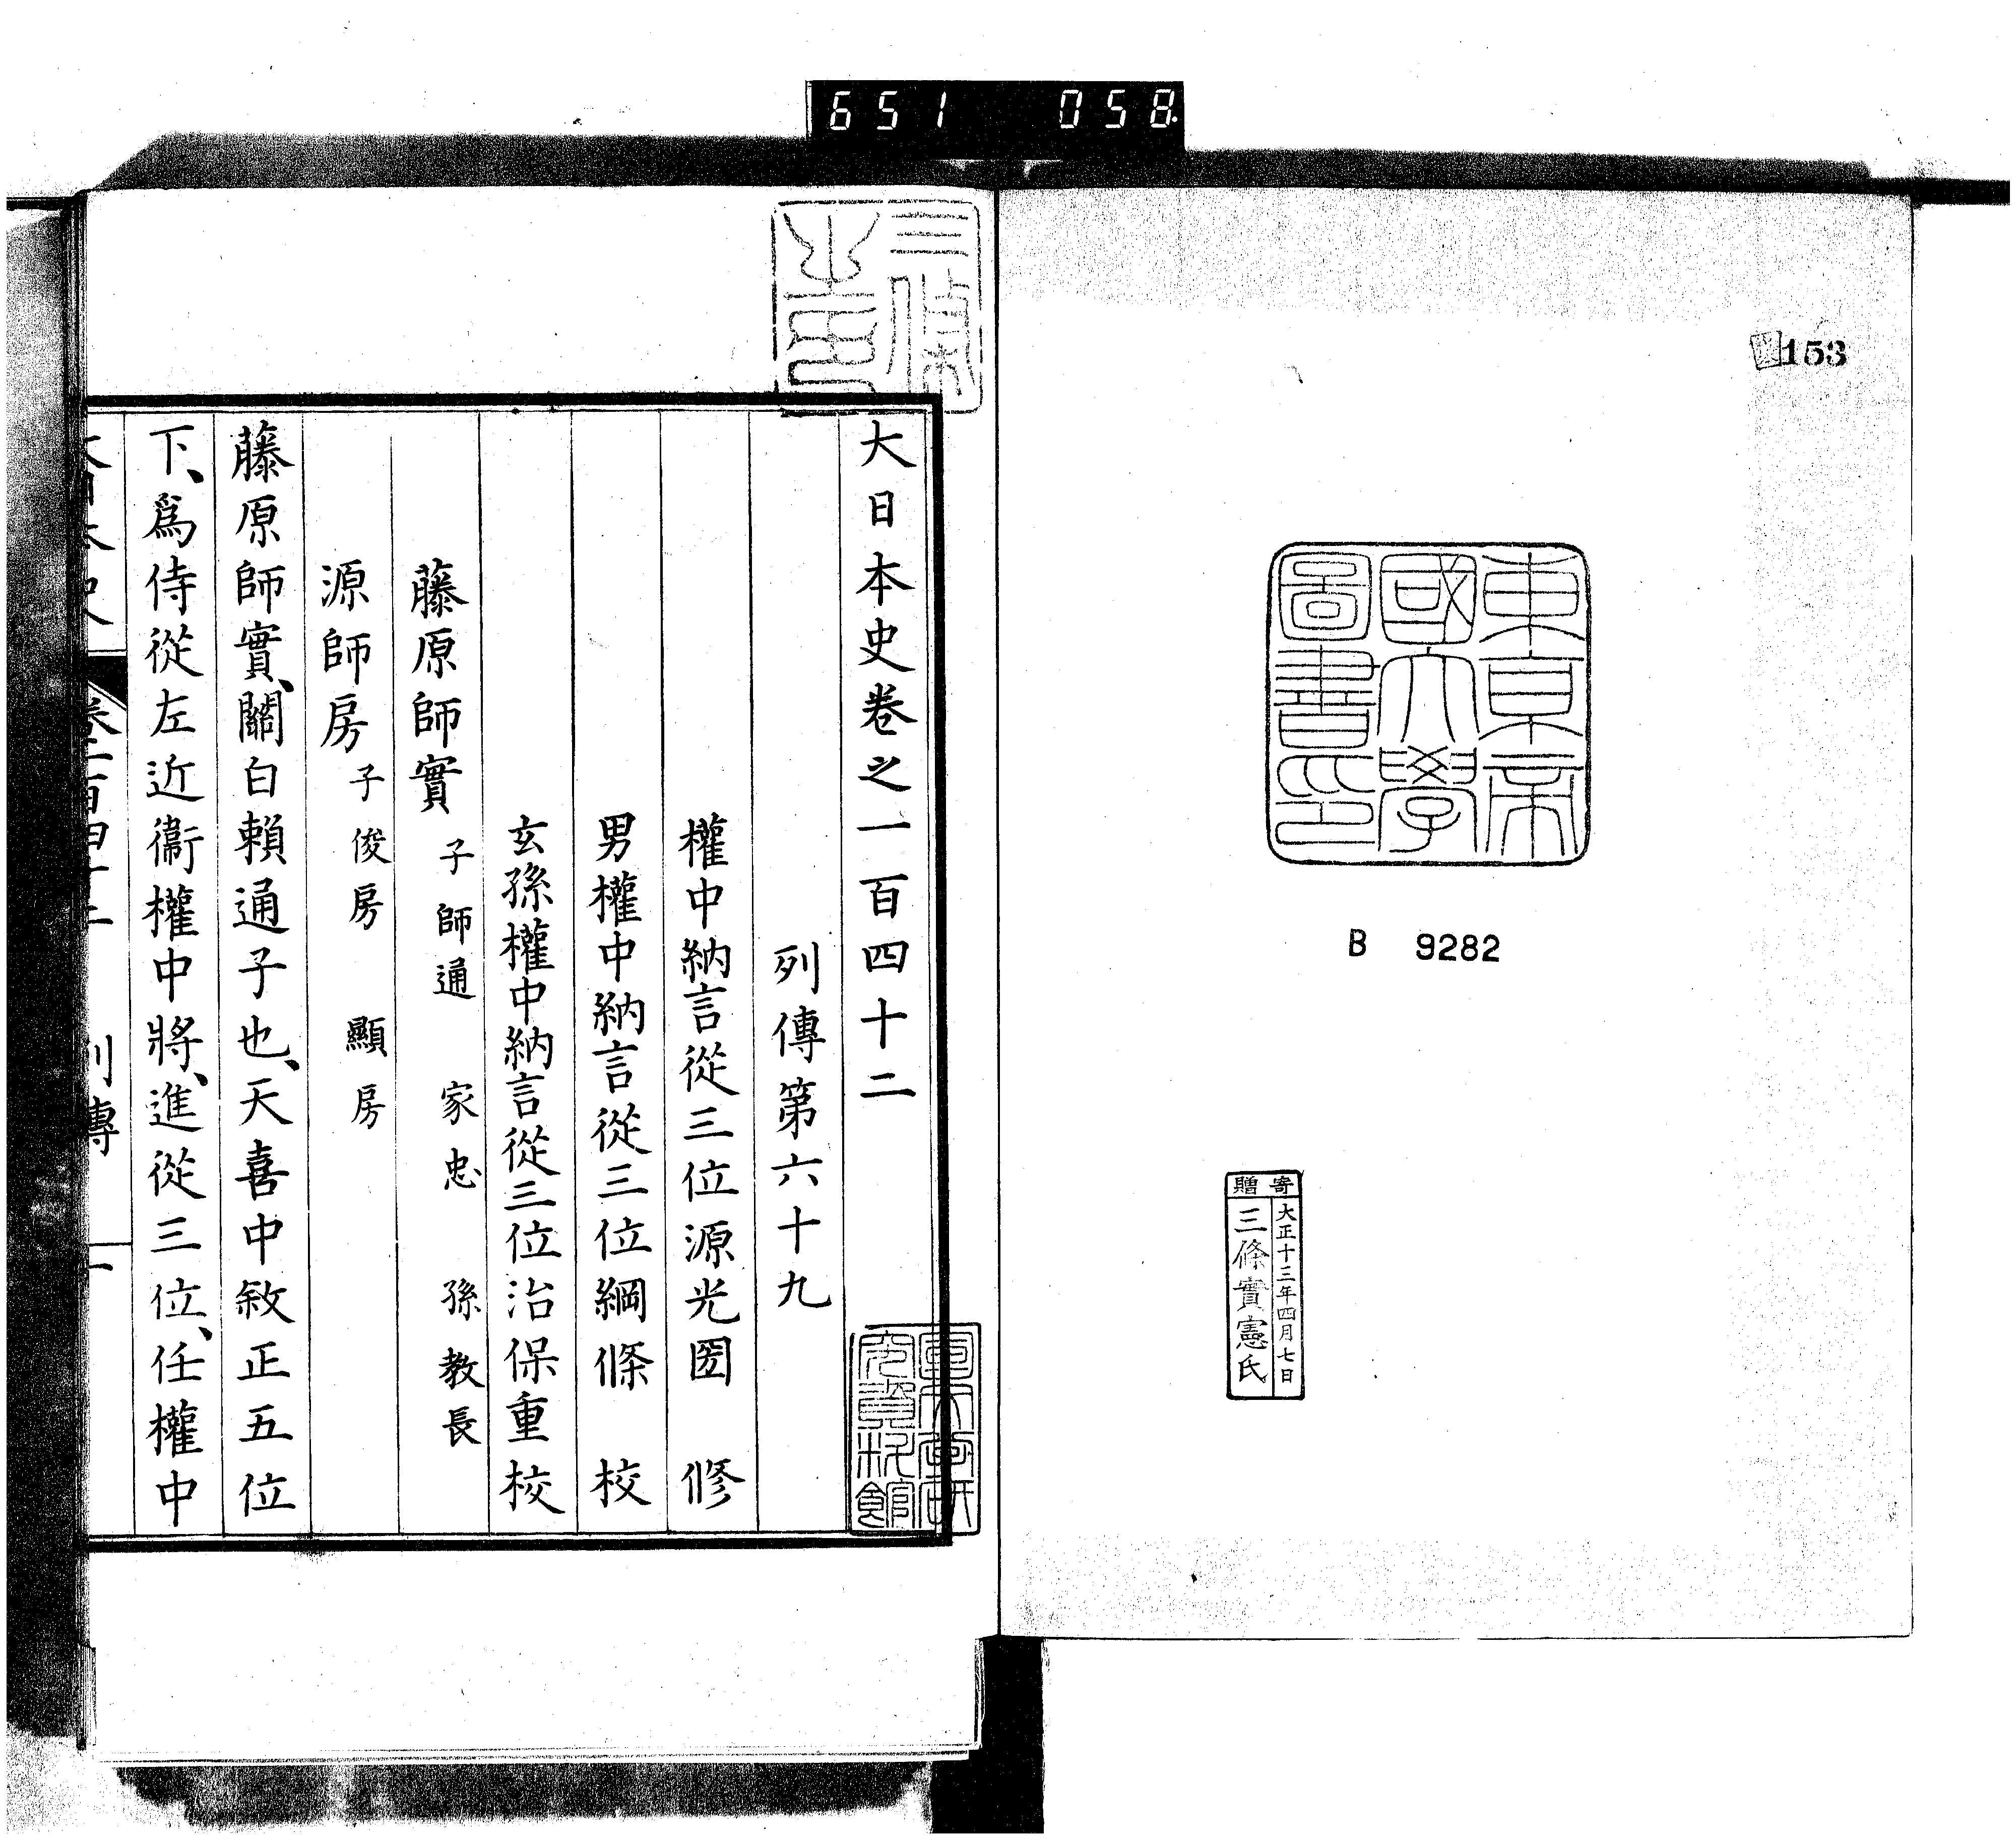 651 058
153
東京帝
國大學
圖書印
B 9282
寄贈
大正十三年四月七日
三條實憲氏
三條
大日本史卷之一百四十二
列傳第六十九
權中納言從三位源光圀 修
男權中納言從三位綱條 校
玄孫權中納言從三位治保重校
藤原師實 子師通 家忠 孫教長
源師房 子俊房 顯房
藤原師實、關白賴通子也、天喜中敘正五位
下、爲侍從左近衞權中將、進從三位、任權中